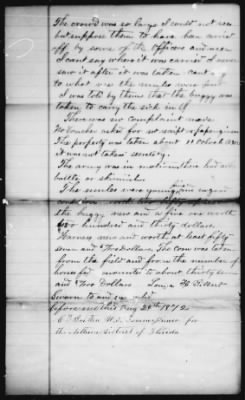 The crowd was so large I could not see
but suppose them to have been carried
off by some of the officers and men
I cant say where it was carried I never
saw it after it was taken cant
to what use the mules were put
I was told by them that the buggy was
taken to carry the sick in
There was no complaint made
No voucher asked for no receipt or paper given
The property was taken about 11 oclock
it was not taken secretly.
The army was in motion there had
battle or skirmish
The mules were young
the buggy new and a fine one worth
two hundred and thirty dollars
Harness new and worth at least fifty
and Two dollars. The corn was taken
from the field and from the number of
horse fed amounts to about thirty
and Two Dollars
Sworn to and
before me this Aug 24th 1872
U.S. Commissioner for
the Northern District of Florida